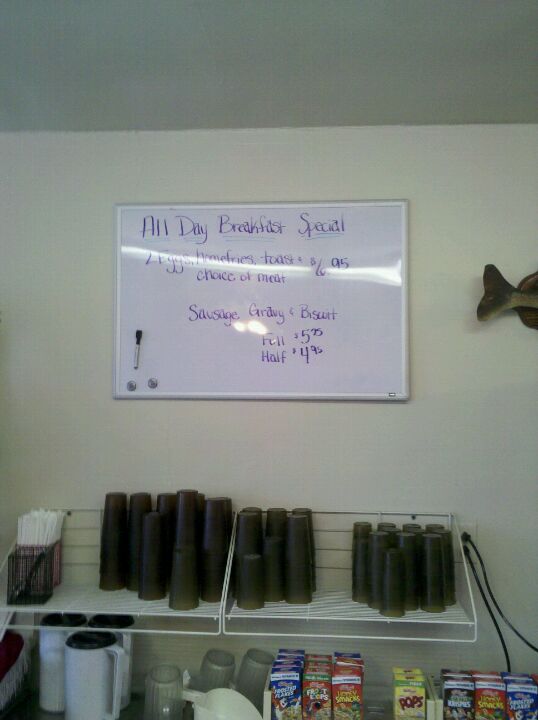 All Day Breakfast Special
2 Eggs, homefries, toast & $6.95
choice of meat
Sausage Gravy & Biscuit
Full $5.95
Half $4.95
FROSTED FLAKES
FROOT LOOPS
HONEY SMACKS
POPS
KRISPIES
HONEY SMACKS
FROSTED FLAKES